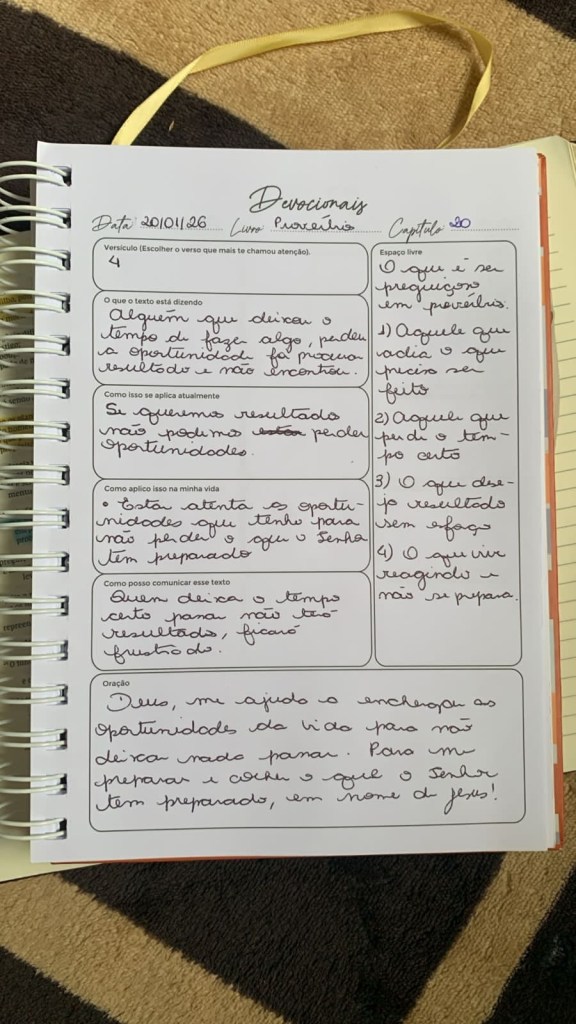 Devocionais
Data 20/01/26 Livro Provérbio Capítulo 20
Versículo (Escolher o verso que mais te chamou atenção).
4
O que o texto está dizendo
Alguém que deixou o
tempo de fazer algo, perdeu
a oportunidade foi procurar
resultado e não encontrou.
Como isso se aplica atualmente
Se queremos resultado
não podemos estar perder
oportunidades.
Como aplico isso na minha vida
• Estar atenta as oportu-
nidades que tenho para
não perder o que o Senhor
tem preparado
Como posso comunicar esse texto
Quem deixa o tempo
certo passar não terá
resultado, ficará
frustrado.
Espaço livre
O que é ser
preguiçoso
em provérbios.
1) Aquele que
adia o que
precisa ser
feito
2) Aquele que
perde o tem-
po certo
3) O que dese-
ja resultado
sem esforço
4) O que vive
reagindo e
não se prepara.
Oração
Deus, me ajuda a enchergar as
oportunidades da vida para não
deixar nada passar. Para me
preparar e colher o que o Senhor
tem preparado, em nome de Jesus!